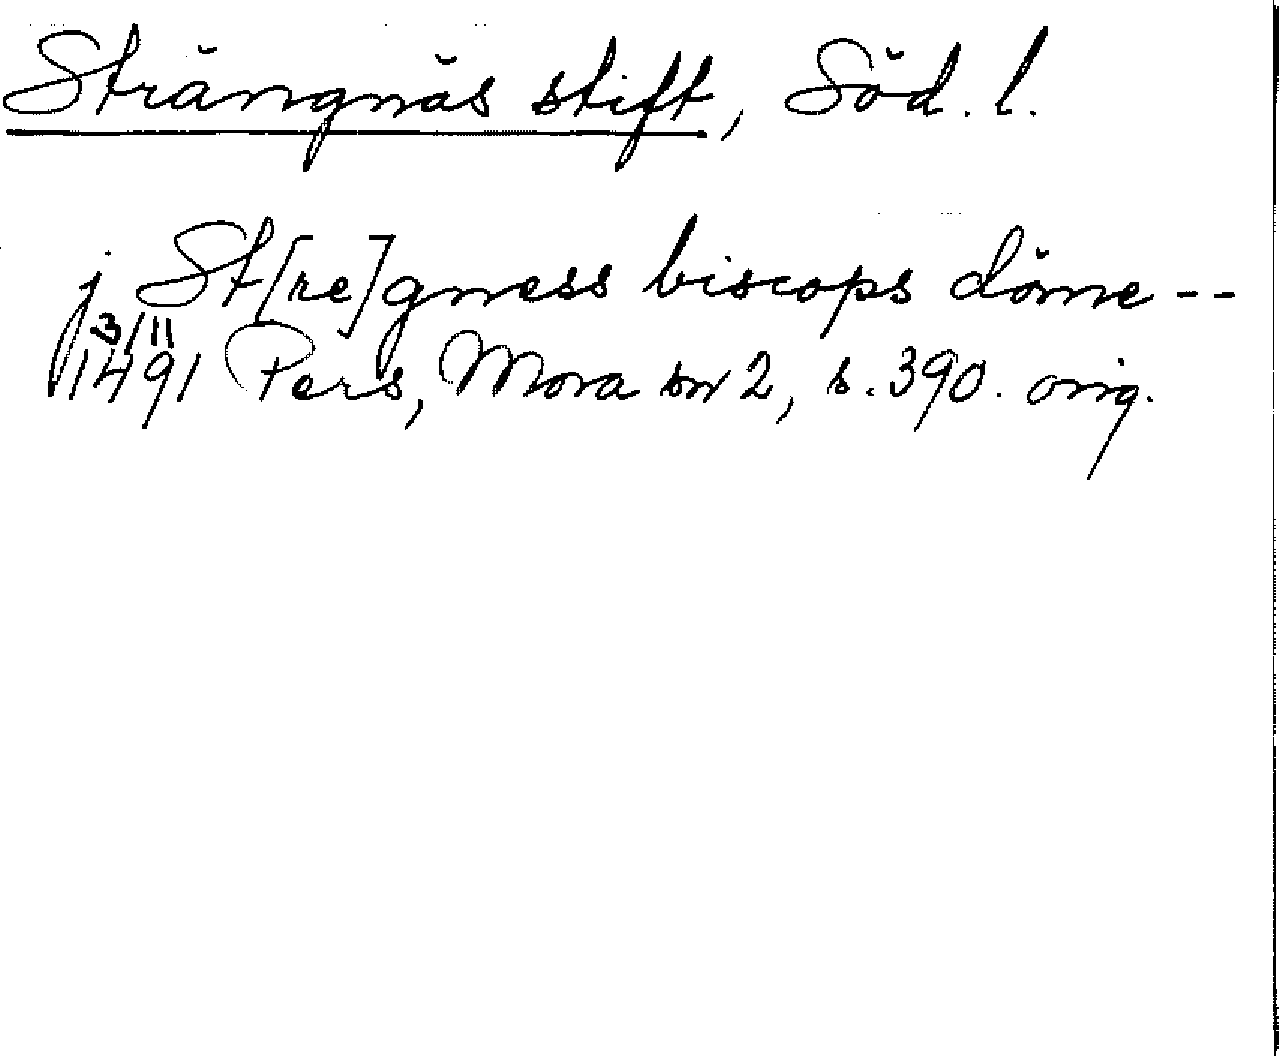 Strängnäs stift, Söd. l.
j St[re]gness biscops döme --
3/11
1491 Pers, Mora sn 2, s. 390. orig.